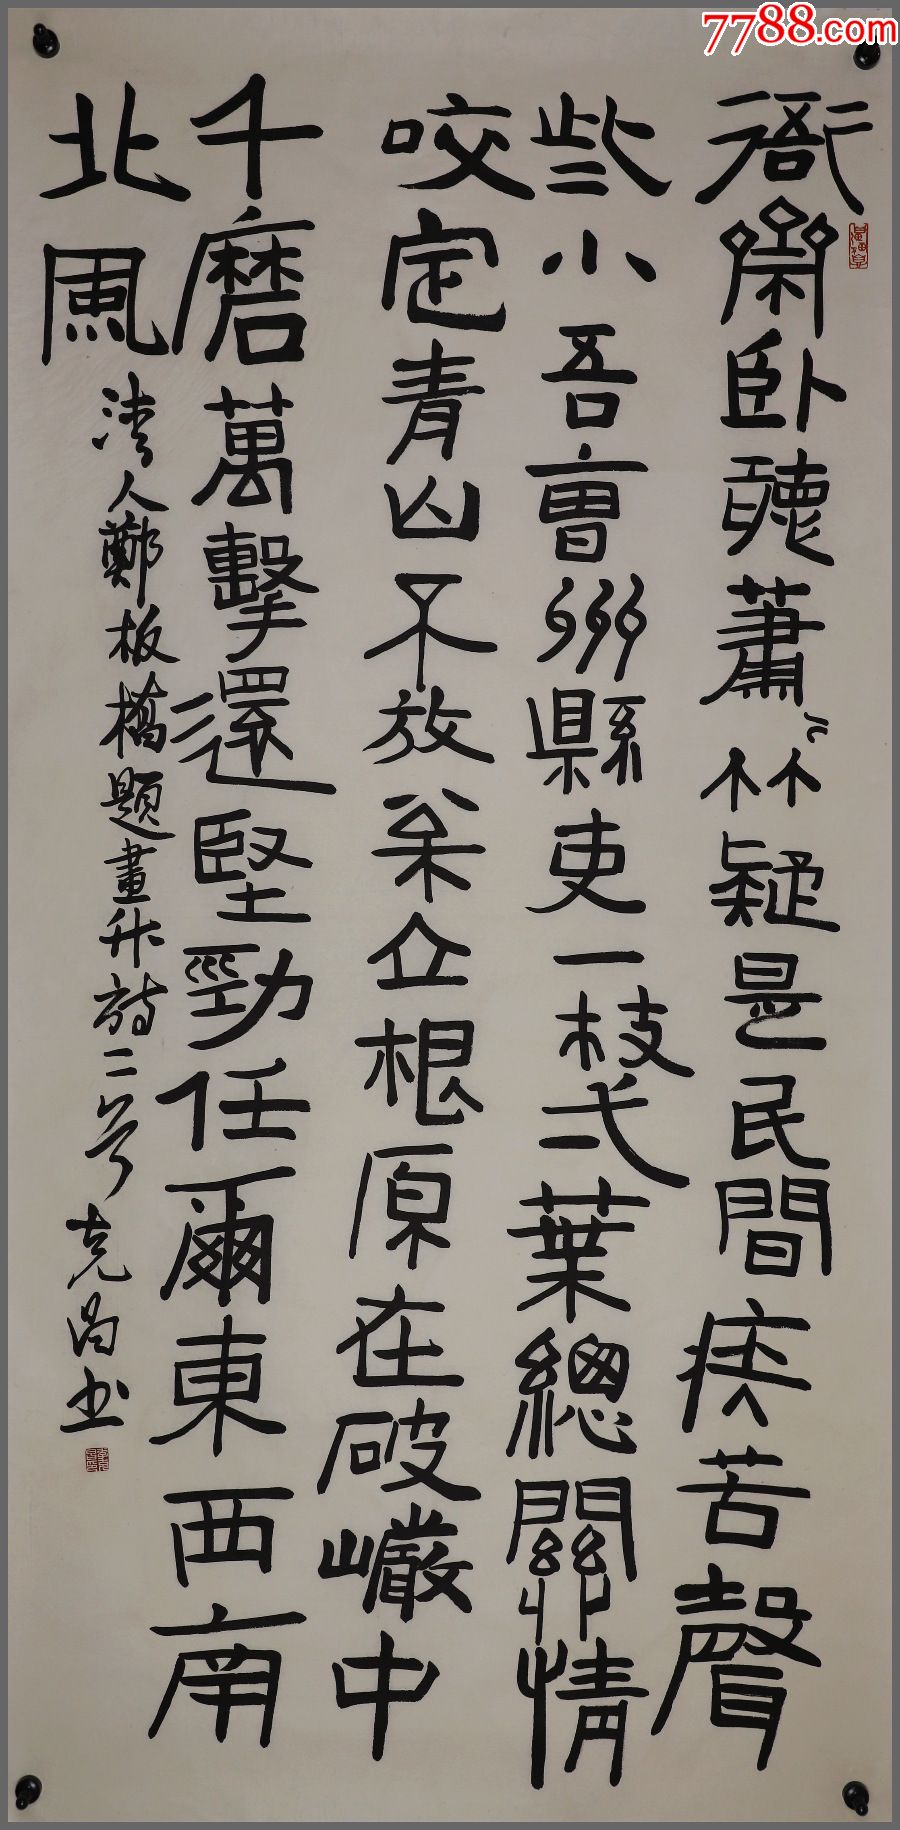 7788.com
衙齋卧聽蕭〻竹疑是民間疾苦聲
些小吾曹州縣吏一枝弍葉總關情
咬定青山不放㳟立根原在破巖中
千磨萬擊還堅勁任爾東西南
北風
清人鄭板橋題畫竹詩二首
克昌书